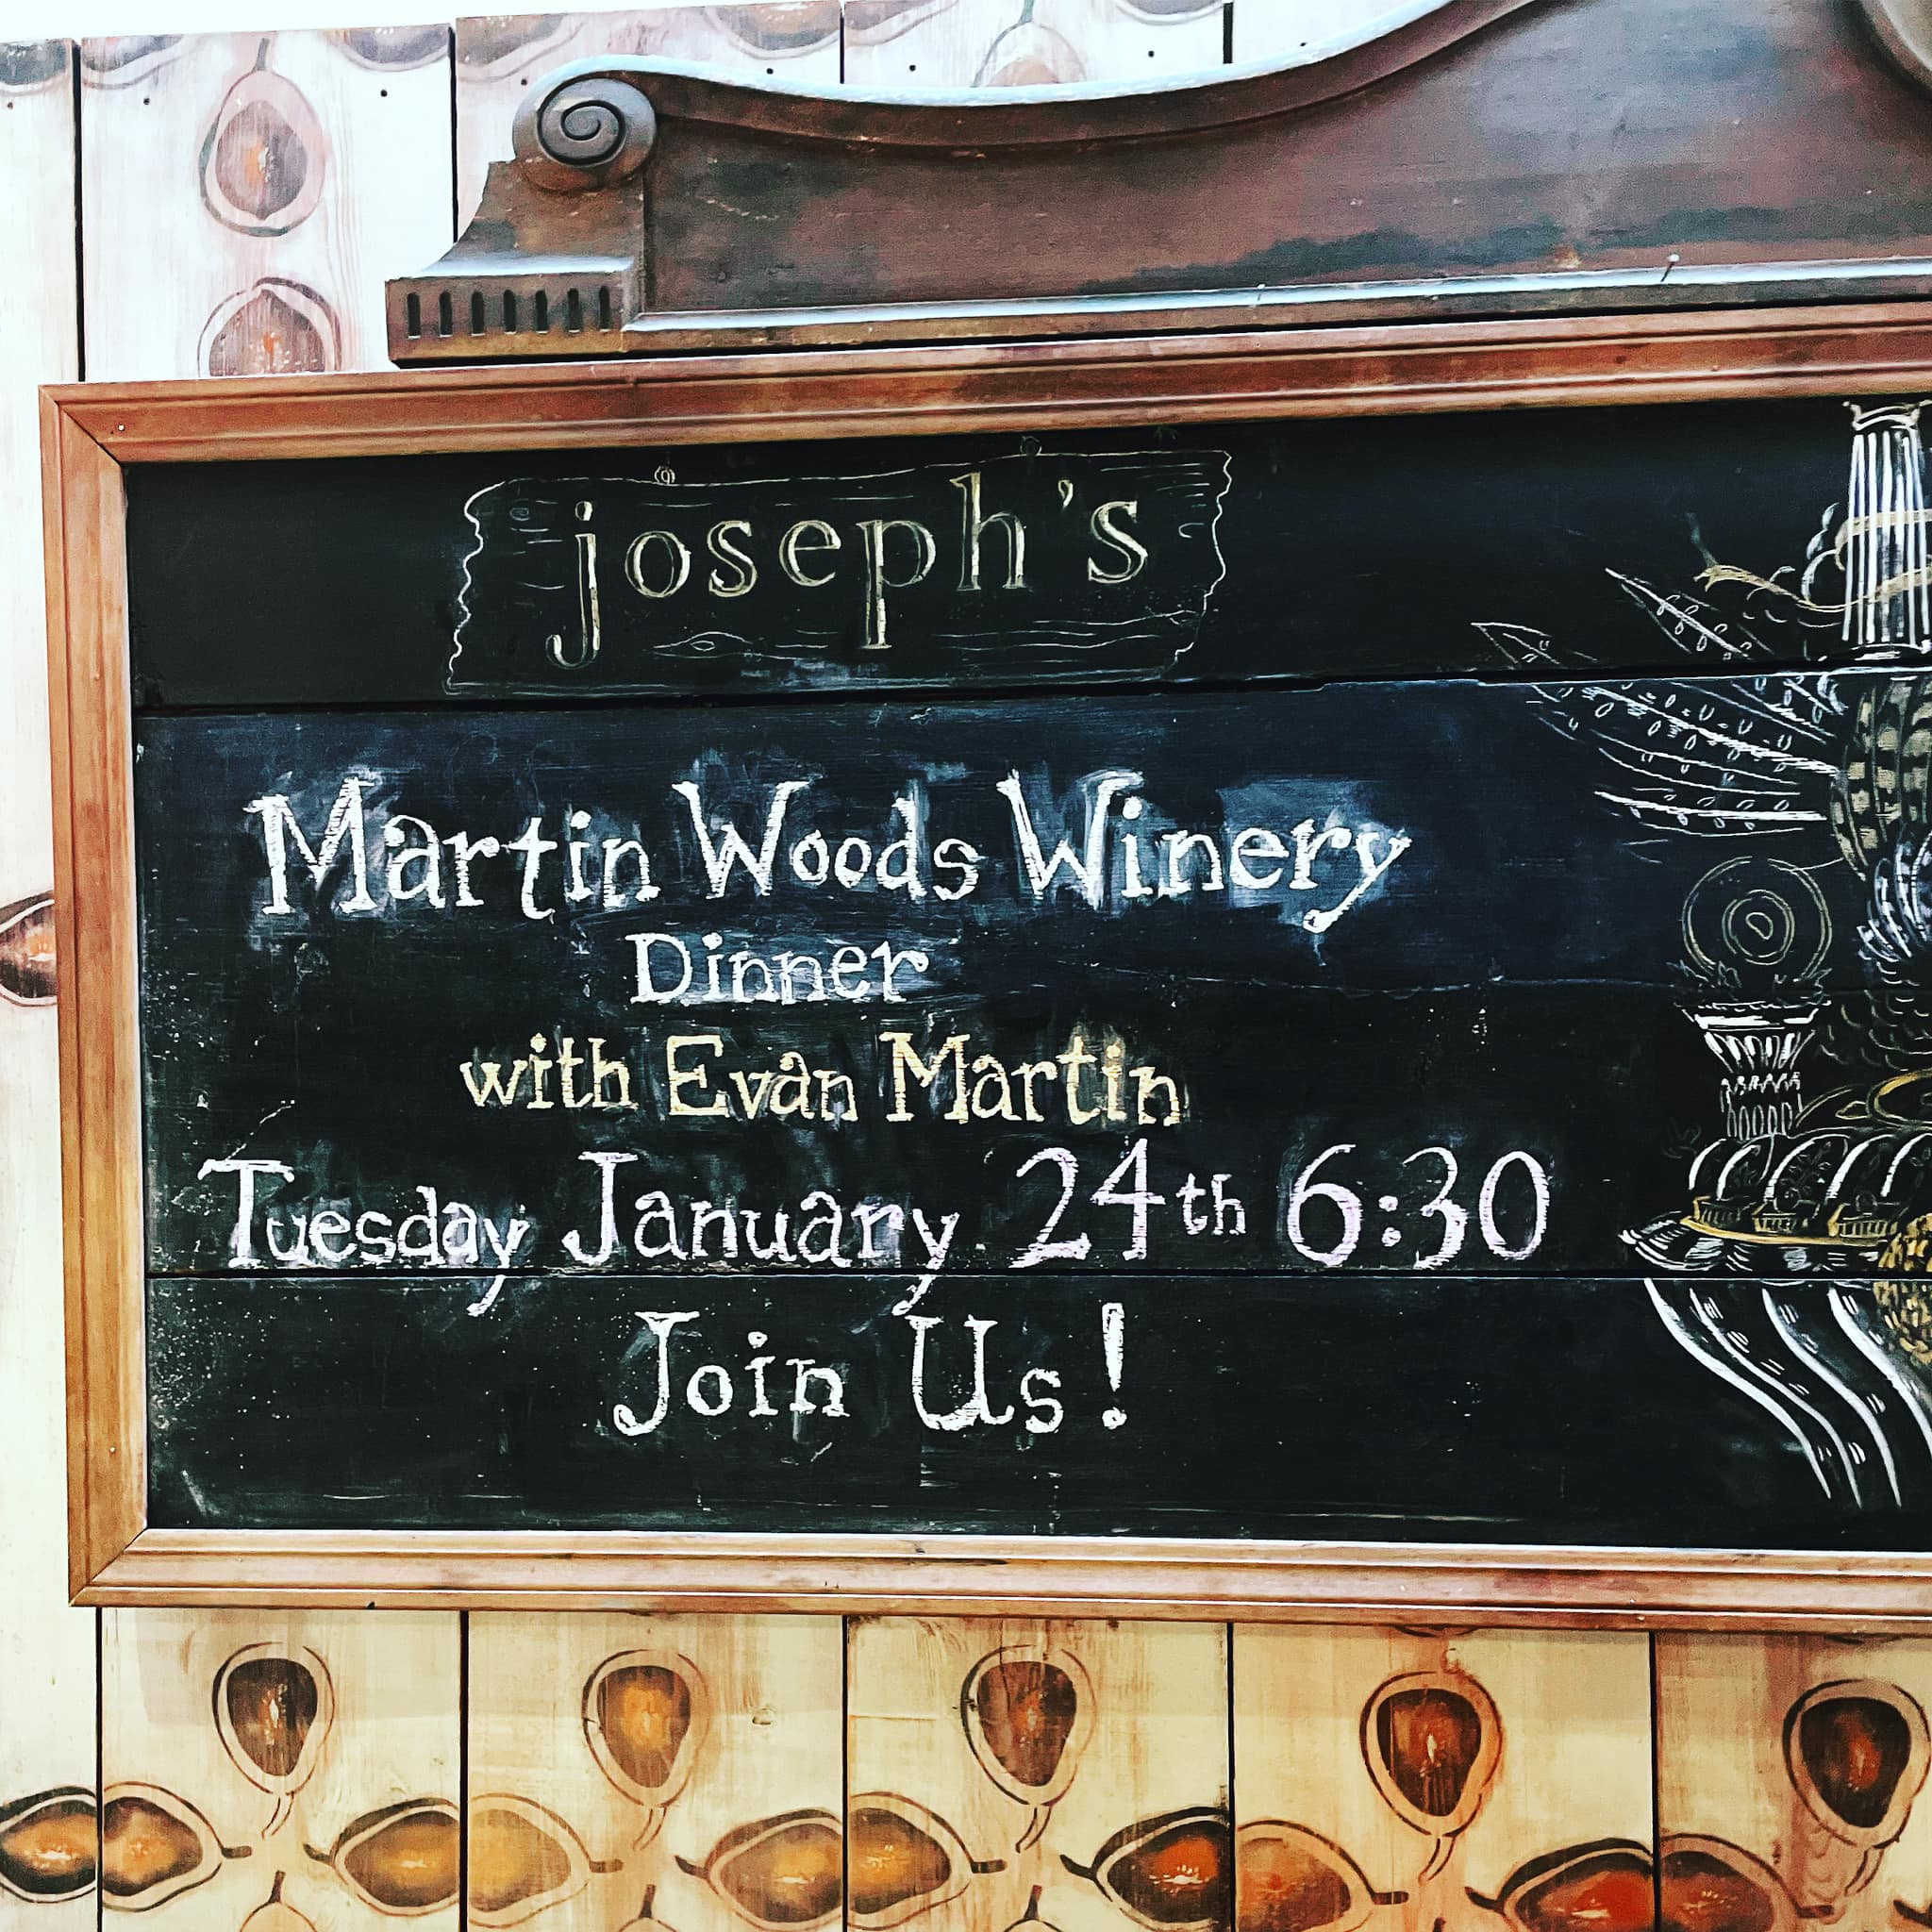 joseph's
Martin Woods Winery
Dinner
with Evan Martin
Tuesday January 24th 6:30
Join Us!